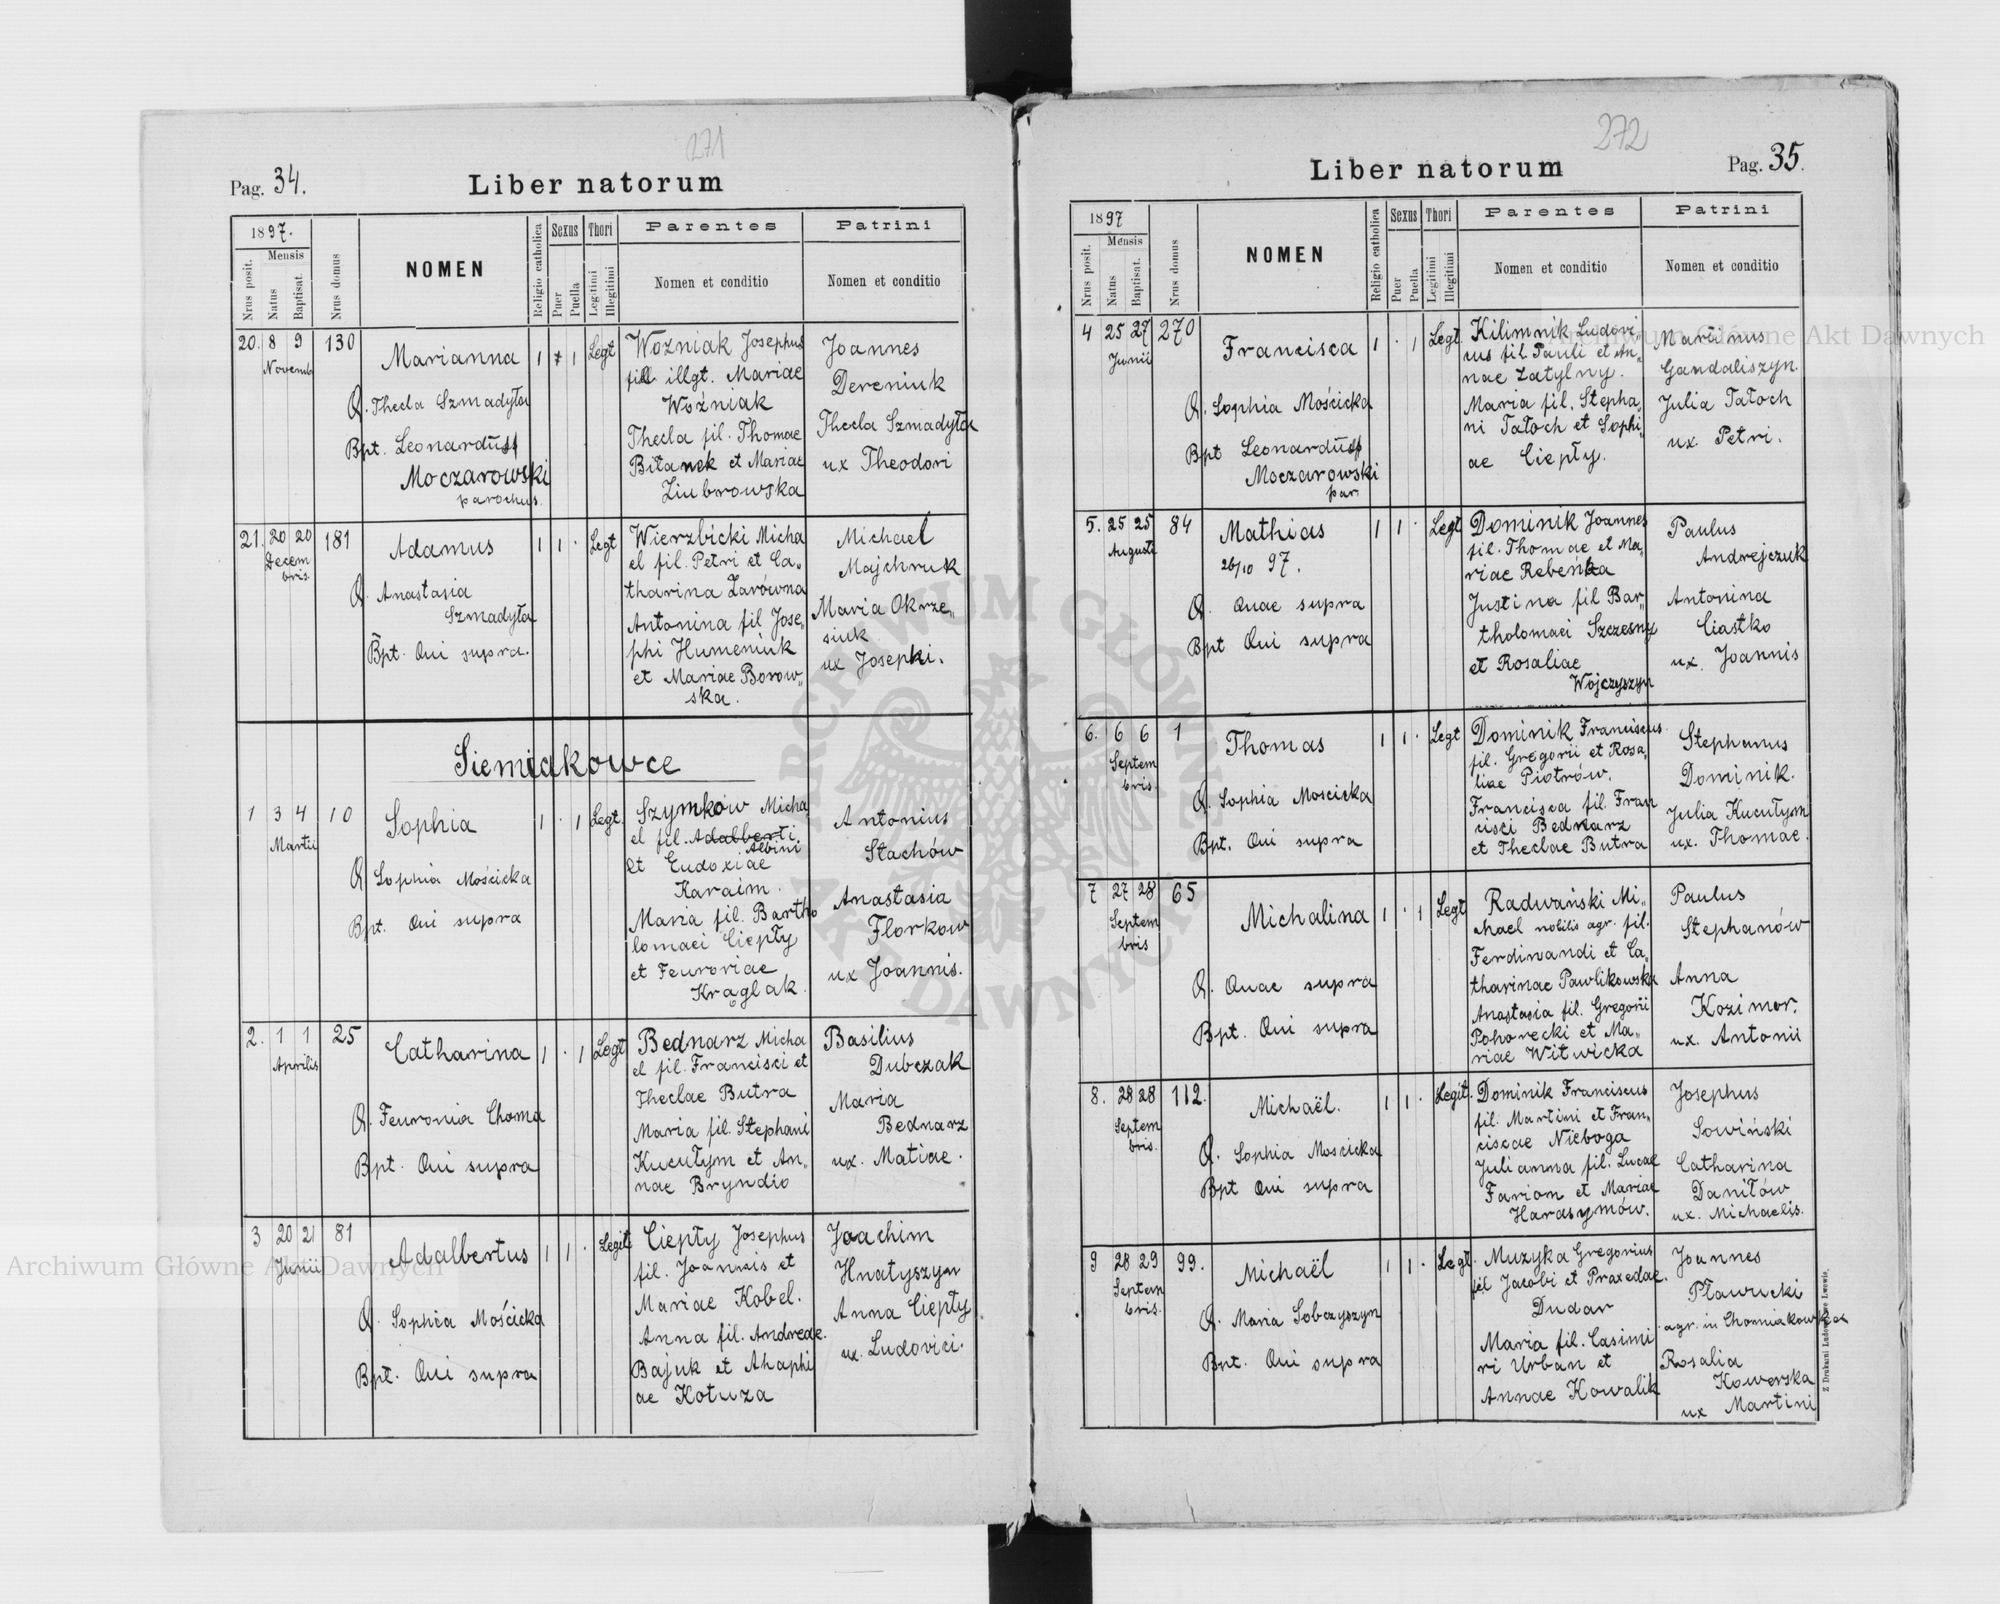 271
Pag. 34.
Liber natorum
1897.
Mensis
Nrus posit.
Natus
Baptisat.
Nrus domus
NOMEN
Religio catholica
Sexus
Puer
Puella
Thori
Legitimi
Illegitimi
Parentes
Nomen et conditio
Patrini
Nomen et conditio
20. 8 9 130
Novemb
Marianna
1 + 1 Legt
O. Thecla Szmadyła
Bpt. Leonardus
Moczarowski
parochus.
Wozniak Josephus
fil illgt. Mariae
Woźniak
Thecla fil. Thomae
Bitanek et Mariae
Ziubrowska
Joannes
Dereniuk
Thecla Szmadyła
ux Theodori
21. 20 20 181
Decem
bris.
Adamus
1 1 . Legt
O. Anastasia
Szmadyła
Bpt. Qui supra.
Wierzbicki Micha
el fil. Petri et Ca„
tharina Zarówna
Antonina fil Jose„
phi Humeniuk
et Mariae Borow„
ska.
Michael
Majchruk
Maria Okrze„
siuk
ux Josephi.
Siemiakowce
1 3 4 10
Martii
Sophia
1 . 1 Legt.
O. Sophia Mościcka
Bpt. Qui supra
Szymków Micha
el fil. Adalberti
Albini
et Eudoxiae
Karaim.
Maria fil. Bartho
lomaei Ciepły
et Feuroniae
Krąglak.
Antonius
Stachów
Anastasia
Florkow
ux Joannis.
2. 1 1 25
Aprilis
Catharina
1 . 1 Legt
O. Feuronia Choma
Bpt. Qui supra
Bednarz Micha
el fil. Francisci et
Theclae Butra
Maria fil. Stephani
Kucułym et An„
nae Bryndio
Basilius
Dubczak
Maria
Bednarz
ux. Matiae.
3 20 21 81
Junii
Adalbertus
1 1 . Legiti
O. Sophia Mościcka
Bpt. Qui supra
Ciepły Josephus
fil. Joannis et
Mariae Kobel.
Anna fil. Andreae.
Bajuk et Ahaphi
ae Kotuza
Joachim
Hnatyszyn
Anna Ciepły
ux. Ludovici.
272
Liber natorum
Pag. 35.
1897
Mensis
Nrus posit.
Natus
Baptisat.
Nrus domus
NOMEN
Religio catholica
Sexus
Puer
Puella
Thori
Legitimi
Illegitimi
Parentes
Nomen et conditio
Patrini
Nomen et conditio
4 25 27 270
Junii
Francisca
1 . 1 Legt
O. Sophia Mościcka
Bpt Leonardus
Moczarowski
par.
Kilimnik Ludovi
cus fil Pauli et An„
nae Zatylny.
Maria fil. Stepha„
ni Tatoch et Sophi„
ae Ciepły.
Marinus
Gandaliszyn.
Julia Tatoch
ux. Petri.
5. 25 25 84
Augusti
Mathias
26/10 97.
1 1 . Legt
O. Quae supra
Bpt Qui supra
Dominik Joannes
fil. Thomae et Ma„
riae Rebenka
Justina fil Bar„
tholomaei Szczesny
et Rosaliae
Wojczyszyn
Paulus
Andrejczuk
Antonina
Ciastko
ux. Joannis
6. 6 6 1
Septem
bris.
Thomas
1 1 . Legt
O. Sophia Moscicka
Bpt. Qui supra
Dominik Franciscus
fil. Gregorii et Rosa„
liae Piotrów.
Francisca fil. Fran
cisci Bednarz
et Theclae Butra
Stephanus
Dominik.
Julia Kucułym
ux. Thomae.
7 27 28 65
Septem
bris
Michalina
1 . 1 Legt
O. Quae supra
Bpt. Qui supra
Radwański Mi„
chael nobilis agr. fil.
Ferdinandi et Ca„
tharinae Pawlikowska
Anastasia fil. Gregorii
Pohorecki et Ma„
riae Witwicka
Paulus
Stephanów
Anna
Kozimor.
ux. Antonii
8. 28 28 112.
Septem
bris.
Michaël.
1 1 . Legit.
O. Sophia Moscicka
Bpt Qui supra
Dominik Franciscus
fil. Martini et Fran„
ciscae Nieboga
Julianna fil. Lucae
Farion et Mariae
Harasymów.
Josephus
Sowiński
Catharina
Daniłów
ux. Michaelis.
9 28 29 99.
Septem
bris.
Michaël
1 1 . Legt.
O. Maria Sobczyszyn
Bpt. Qui supra
Muzyka Gregorius
fil Jacobi et Praxedae.
Dudar
Maria fil. Casimi
ri Urban et
Annae Kowalik
Joannes
Pławucki
agr. in Chomiakowka
Rosalia
Kowerska
ux Martini
Z Drukarni Ludowej we Lwowie.
Archiwum Główne Akt Dawnych
Archiwum Główne Akt Dawnych
ARCHIWUM GŁÓWNE AKT DAWNYCH